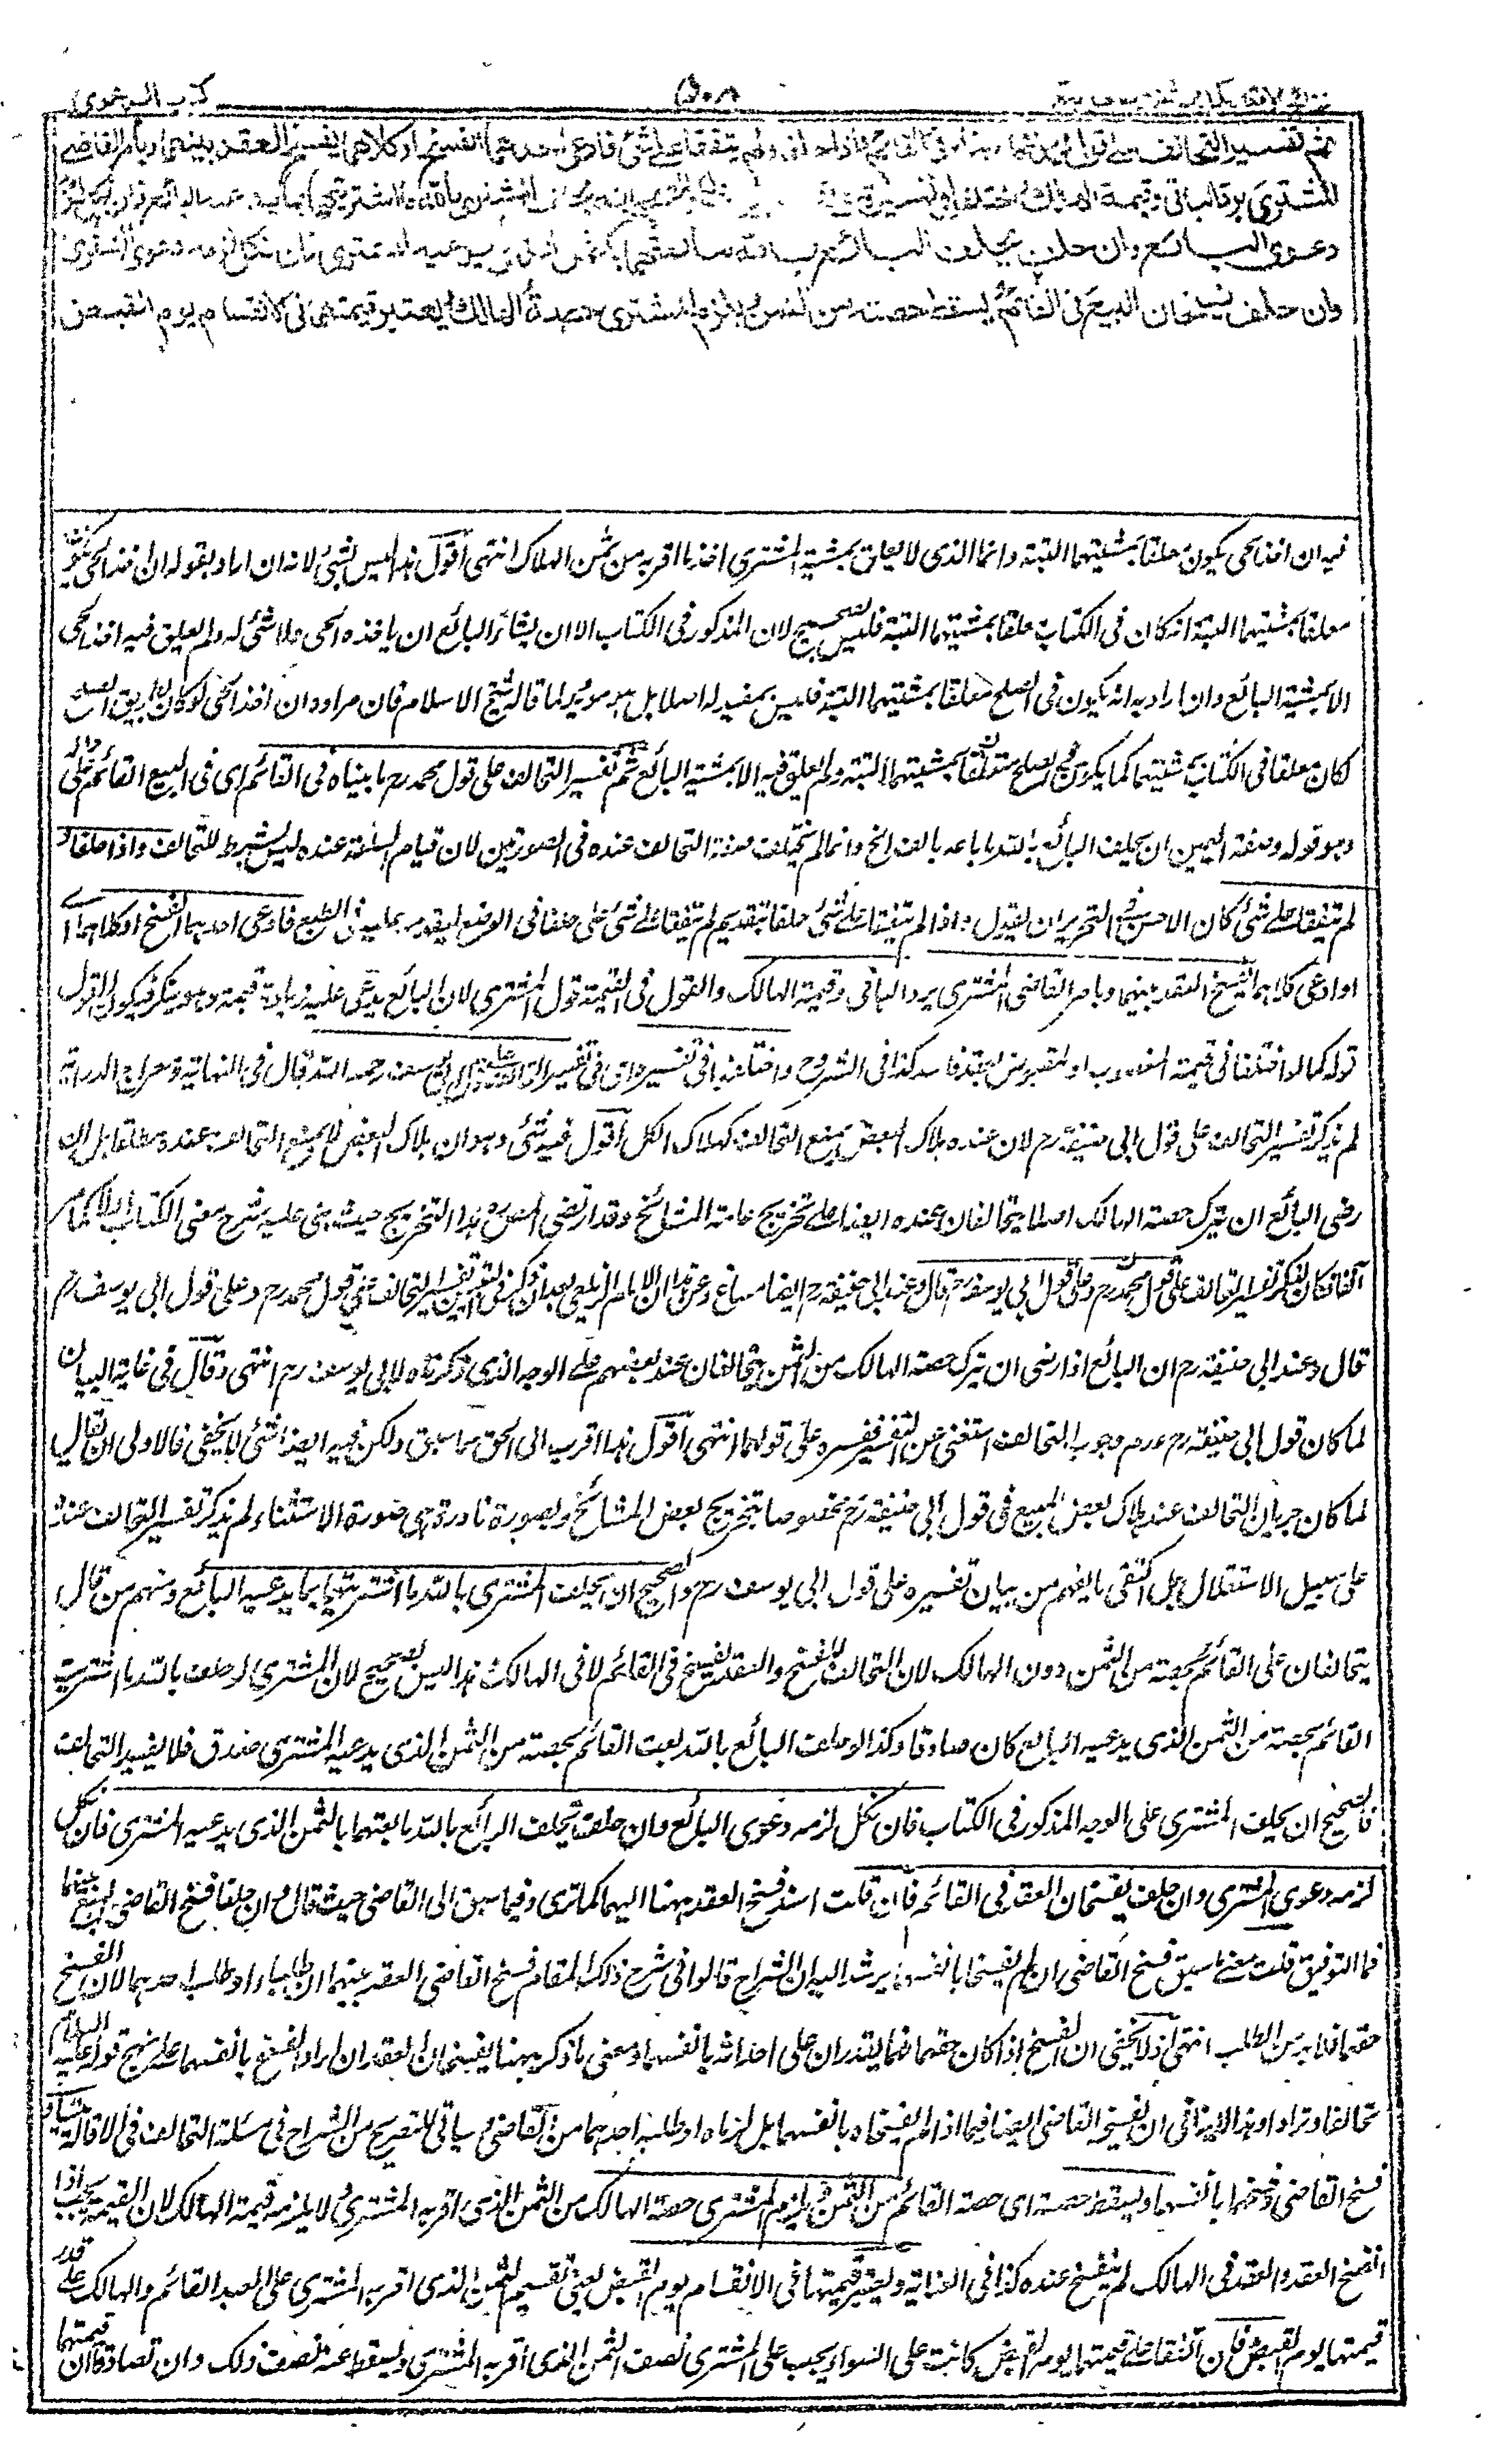 كتاب الدعوى
٥٠٨
ثم تفسير التحالف على قول محمد ما بيناه في القائم واذا حلفا ولم يتفقا على شئ فادعى احدهما الفسخ او كلاهما يفسخ العقد بينهما ويامر القاضي
المشتري برد الباقي وقيمة الهالك واختلفوا في تفسيره
دعوى البائع وان حلف يحلف البائع بالله ما بعتهما بالثمن الذي يدعيه المشتري فان نكل لزمه دعوى المشتري
وان حلف يفسخان البيع في القائم ويسقط حصته من الثمن ويلزم المشتري حصة الهالك ويعتبر قيمتهما في الانقسام يوم القبض
فيه ان اخذ الحي يكون معلقا بمشيتهما البتة وانما الذي لا يعلق بمشية المشتري اخذ ما اقر به من ثمن الهالك انتهى اقول هذا ليس بشئ لانه ان اراد بقوله ان اخذ الحي يكون
معلقا بمشيتهما البتة انه كان في الكتاب معلقا بمشيتهما البتة فليس بصحيح لان المذكور في الكتاب الا ان يشاء البائع ان ياخذه الحي ولا شئ له ولم يعلق فيه اخذ الحي
الا بمشية البائع وان اراد به انه يكون في الصلح معلقا بمشيتهما البتة فليس بمفيد له اصلا بل هو مؤيد لما قاله شيخ الاسلام فان مراده ان اخذ الحي لو كان بطريق الصلح
لكان معلقا في الكتاب بمشيتهما كما يكون في الصلح متعلقا بمشيتهما البتة ولم يعلق فيه الا بمشية البائع ثم تفسير التحالف على قول محمد رح ما بيناه في القائم اى في المبيع القائم على حاله
وهو قوله وصفة اليمين ان يحلف البائع بالله ما باعه بالف الخ وانما لم يختلف صفة التحالف عنده في الصورتين لان قيام السلعة عنده ليس بشرط للتحالف واذا حلفا و
لم يتفقا على شئ كان الاحسن في التحرير ان يقول واذا لم يتفقا على شئ حلفا بتقديم لم يتفقا على شئ على حلفا في الوضع لتقدمه عليه في الطبع فادعى احدهما الفسخ او كلاهما اى
او ادعى كلاهما الفسخ يفسخ العقد بينهما ويامر القاضي المشتري برد الباقي وقيمة الهالك والقول في القيمة قول المشتري لان البائع يدعى عليه زيادة قيمة وهو ينكر فيكون القول
قوله كما لو اختلفا في قيمة المغصوب او المقبوض بعقد فاسد كذا في الشروح واختلفوا في تفسيره اى في تفسير التحالف على قول ابي يوسف رحمه الله قال في النهاية ومعراج الدراية
لم يذكر تفسير التحالف على قول ابي حنيفة رح لان عنده هلاك البعض يمنع التحالف كهلاك الكل اقول فيه شئ وهو ان هلاك البعض لا يمنع التحالف عنده مطلقا بل ان
رضي البائع ان يترك حصة الهالك اصلا يتحالفان عنده ايضا على تخريج عامة المشائخ وقد ارتضى المصنف هذا التخريج حيث بنى عليه شرح معنى الكتاب اولا كما مر
آنفا فكان لذكر تفسير التحالف على قول محمد رح وعلى قول ابي يوسف رح قال وعند ابي حنيفة رح ايضا مساغ وعن هذا ان الامام الزيلعي بعد ان ذكر في التبيين تفسير التحالف على قول محمد رح وعلى قول ابي يوسف رح
قال وعند ابي حنيفة رح ان البائع اذا رضي ان يترك حصة الهالك من الثمن يتحالفان عند بعضهم على الوجه الذي ذكرناه لابي يوسف رح انتهى وقال في غاية البيان
لما كان قول ابي حنيفة رح عدم وجوب التحالف استغنى عن التفسير ففسره على قولهما انتهى اقول هذا اقرب الى الحق مما سبق ولكن فيه ايضا شئ لا يخفى فالاولى ان يقال
لما كان جريان التحالف عند هلاك بعض المبيع في قول ابي حنيفة رح مخصوصا بتخريج بعض المشائخ وبصورة نادرة هي صورة الاستثناء لم يذكر تفسير التحالف عنده
على سبيل الاستقلال بل اكتفى بما يفهم من بيان تفسيره على قول ابي يوسف رح والصحيح ان يحلف المشتري بالله ما اشتريتهما بما يدعيه البائع ومنهم من قال
يتحالفان على القائم بحصته من الثمن دون الهالك لان التحالف للفسخ والعقد يفسخ في القائم لا في الهالك هذا ليس بصحيح لان المشتري لو حلف بالله ما اشتريت
القائم بحصته من الثمن الذي يدعيه البائع كان صادقا وكذا لو حلف البائع بالله ما بعت القائم بحصته من الثمن الذي يدعيه المشتري صدق فلا يفيد التحالف
فالصحيح ان يحلف المشتري على الوجه المذكور في الكتاب فان نكل لزمه دعوى البائع وان حلف يحلف البائع بالله ما بعتهما بالثمن الذي يدعيه المشتري فان نكل
لزمه دعوى المشتري وان حلف يفسخان العقد في القائم فان قلت اسند فسخ العقد ههنا اليهما كما ترى وفيما سبق الى القاضي حيث قال وان حلفا فسخ القاضي البيع بينهما
فما التوفيق قلت معنى ما سبق فسخ القاضي ان لم يفسخا بانفسهما يرشد اليه ان الشراح قالوا في شرح ذلك المقام فسخ القاضي العقد بينهما ان طلباه او طلب احدهما لان الفسخ
حقهما فلا بد من الطلب انتهى اذ لا يخفى ان الفسخ اذا كان حقهما فهما يقتدران على احداثه بانفسهما ومعنى ما ذكر ههنا يفسخان العقد ان ارادا الفسخ بانفسهما على نهج قوله عليه السلام
تحالفا وترادا وهذا لا ينافي ان يفسخه القاضي ايضا فيما اذا لم يفسخاه بانفسهما بل طلباه او طلبه احدهما من القاضي وسياتي التصريح من الشراح في مسئلة التحالف في الاقالة بتساوي
فسخ القاضي وفسخهما بانفسهما ويسقط حصته اى حصة القائم من الثمن ويلزم المشتري حصة الهالك من الثمن الذي اقر به المشتري ولا يلزمه قيمة الهالك لان القيمة يجب اذا
انفسخ العقد والعقد في الهالك لم ينفسخ عنده كذا في العناية ويعتبر قيمتهما في الانقسام يوم القبض يعني تقسيم الثمن الذي اقر به المشتري على العبد القائم والهالك على قدر
قيمتهما يوم القبض فان اتفقا على قيمتهما يوم القبض كانت على السواء يجب على المشتري نصف الثمن الذي اقر به المشتري ويسقط عنه نصف ذلك وان تصادقا ان قيمتهما